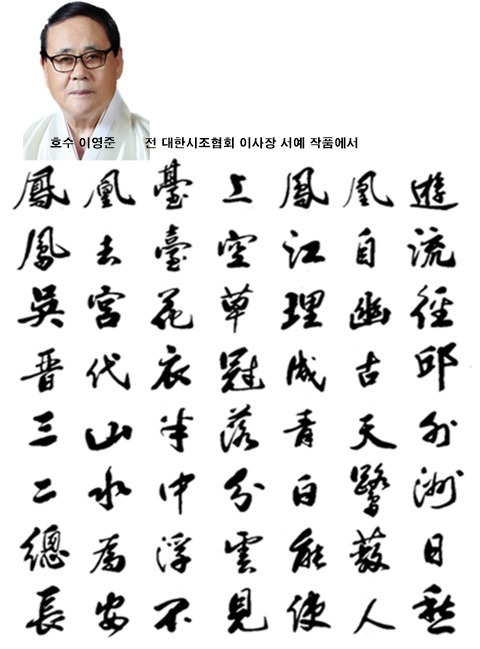 호수 이영준 전 대한시조협회 이사장 서예 작품에서
鳳凰臺上鳳凰遊
鳳去臺空江自流
吳宮花草理幽徑
晉代衣冠成古邱
三山半落青天外
二水中分白鷺洲
總為浮雲能蔽日
長安不見使人愁